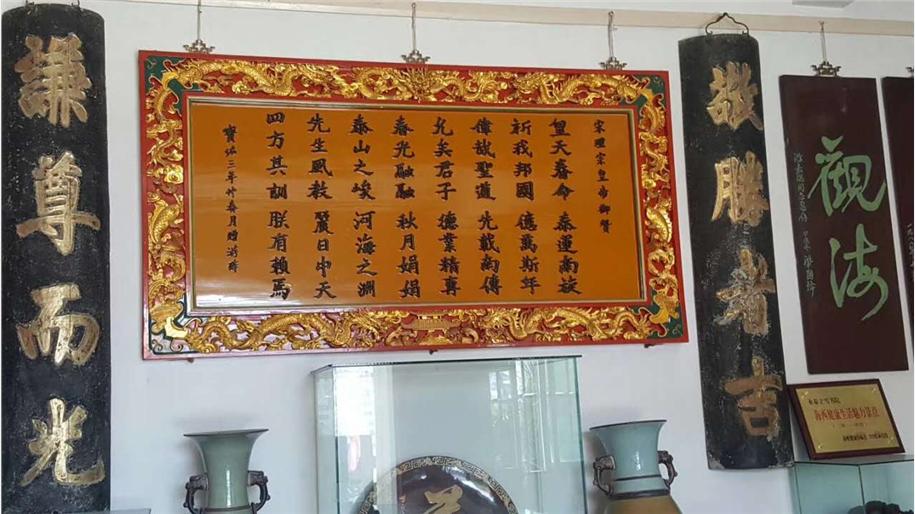 敬勝者吉
宋理宗皇帝御贊
皇天眷命 泰運南旋
祈我邦國 億萬斯年
偉哉聖道 先載南傳
允矣君子 德業精專
春光融融 秋月娟娟
泰山之峻 河海之淵
先生風教 麗日中天
四方其訓 朕有賴焉
寶祐三年廿春月贈游酢
謙尊而光
觀海
海西健康生活魅力景点